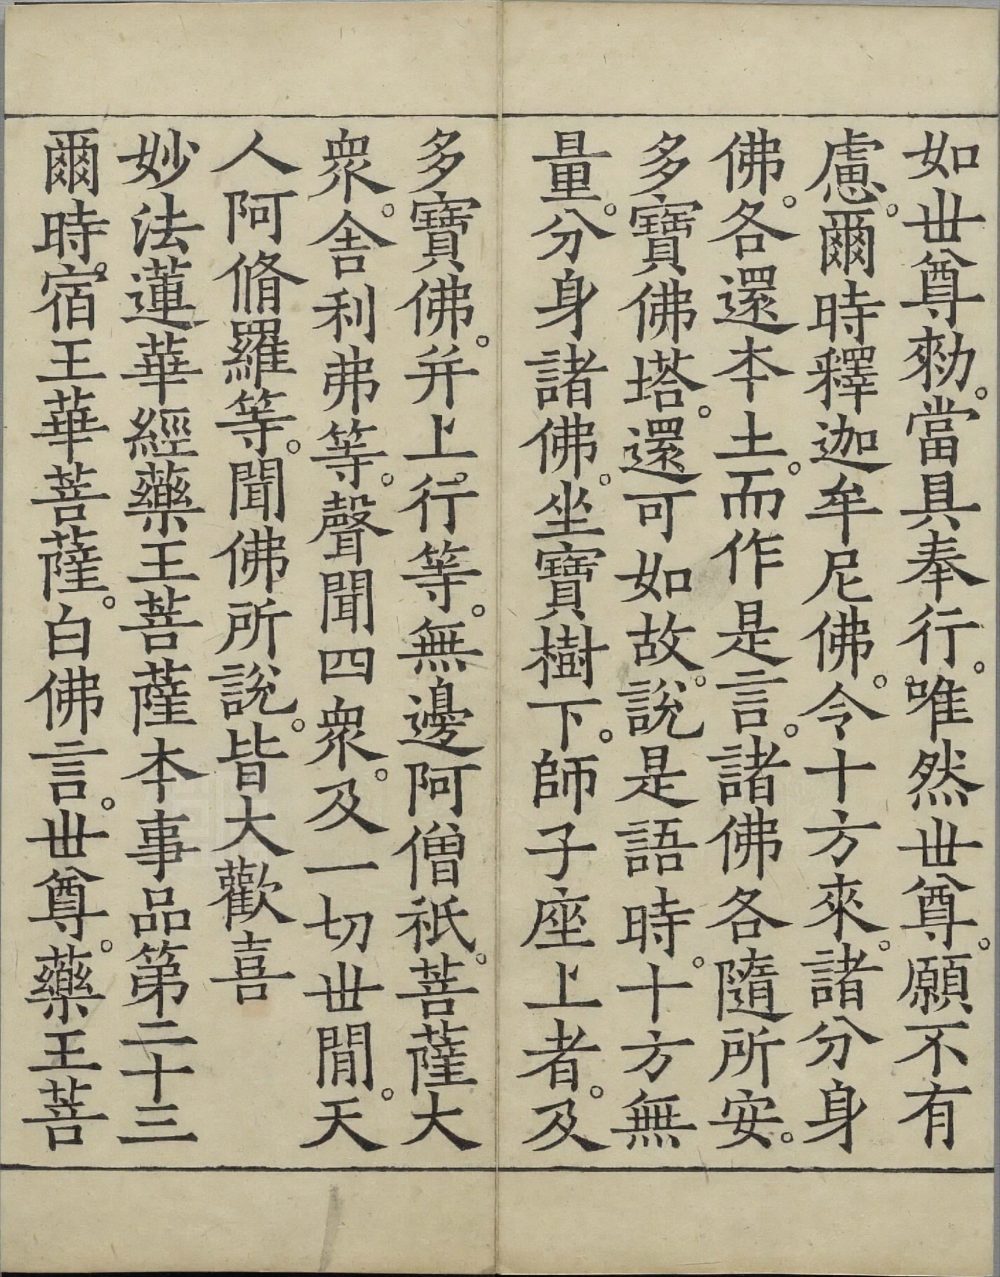 如世尊勑。當具奉行。唯然世尊。願不有
慮。爾時釋迦牟尼佛。令十方來。諸分身
佛。各還本土。而作是言。諸佛各隨所安。
多寶佛塔。還可如故。說是語時。十方無
量。分身諸佛。坐寶樹下。師子座上者。及
多寶佛。并上行等。無邊阿僧祇。菩薩大
衆。舍利弗等。聲聞四衆。及一切世閒。天
人阿脩羅等。聞佛所說。皆大歡喜
妙法蓮華經藥王菩薩本事品第二十三
爾時。宿王華菩薩。白佛言。世尊。藥王菩